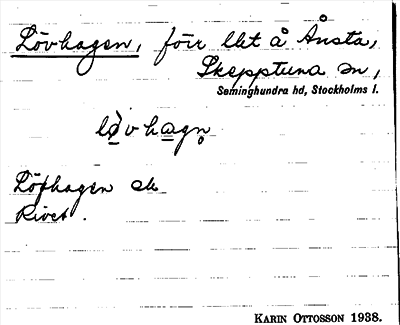 Lövhagen, förr lht å Ånsta,
Skepptuna sn,
Seminghundra hd, Stockholms l.
lö̀vhagn̥
Löfhagen ek
Rivet.
KARIN OTTOSSON 1938.